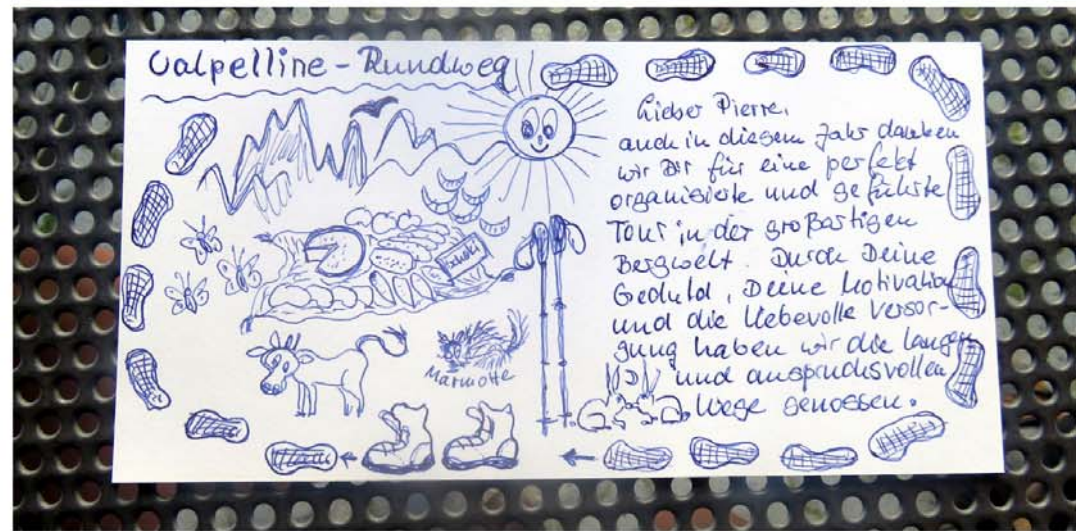 Valpelline - Rundweg
Schoki
Marmotte
Lieber Pierre,
auch in diesem Jahr danken
wir Dir für eine perfekt
organisierte und geführte
Tour in der großartigen
Bergwelt. Durch Deine
Geduld, Deine Motivation
und die liebevolle Versor-
gung haben wir die langen
und anspruchsvollen
Wege genossen.